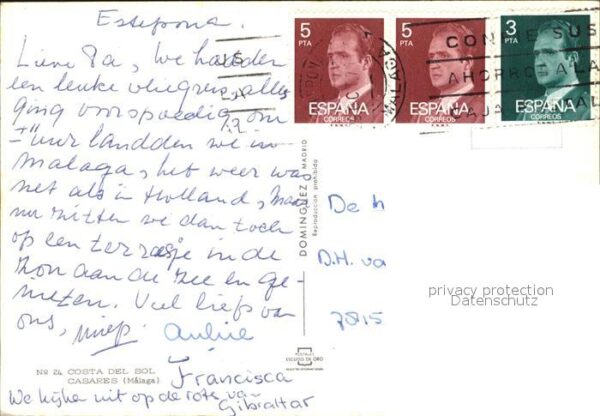 Estepona.
Lieve Pa, We hadden
een leuke vliegreis, alles
ging voorspoedig, om
uur landden we in
Malaga, het weer was
net als in Holland, maar
nu zitten we dan toch
op een terrasje in de
zon aan de zee en ge-
nieten. Veel liefs van
ons, Miep.
Francisca
We kijken uit op de rots van
Gibraltar
5 PTA
ESPAÑA
CORREOS
5 PTA
ESPAÑA
CORREOS
3 PTA
ESPAÑA
CORREOS
MALAGA
DOMINGUEZ MADRID
Reproduccion prohibida
De h
D.H. va
7815
privacy protection
Datenschutz
POSTALES
ESCUDO DE ORO
Nº 24 COSTA DEL SOL
CASARES (Málaga)